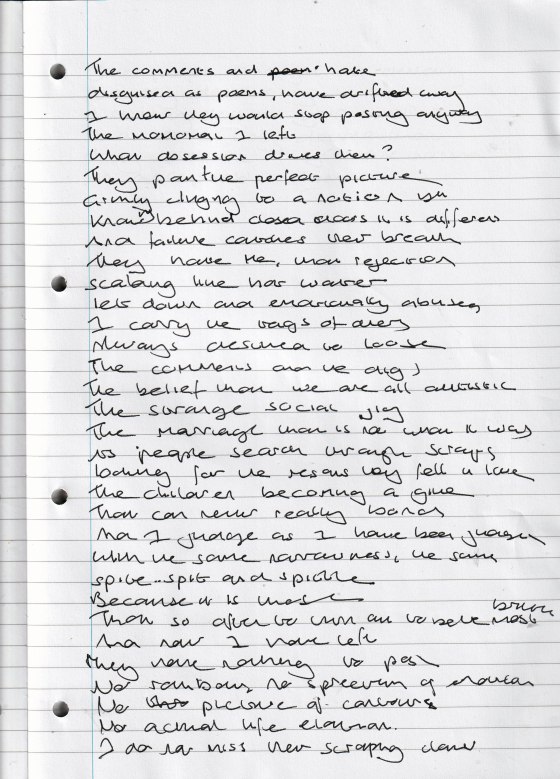 The comments and poem hate
disguised as poems, have drifted away
I knew they would stop posting anyway
The moment I left
What obsession drives them?
They paint the perfect picture
Grimly clinging to a notion
Known behind closed doors it is different
And failure catches their breath
They hate me, that rejection
scalding like hot water
lets down and emotionally abuses
I carry the bags of
Always destined to loose
The comments and the digs
The belief that we are all autistic
The strange social gig
The marriage that is not what it was
As people search through scraps
looking for the reasons they fell in love
The children becoming a glue
That can never really bond
And I judge as I have been judged
With the same narrowness, the same
spite - spit and spittle
Because it is those
That so often to be better
And now I have left
They have nothing to post
No rainbow, no spreading of
No picture of
No actual life
I do not miss their scraping